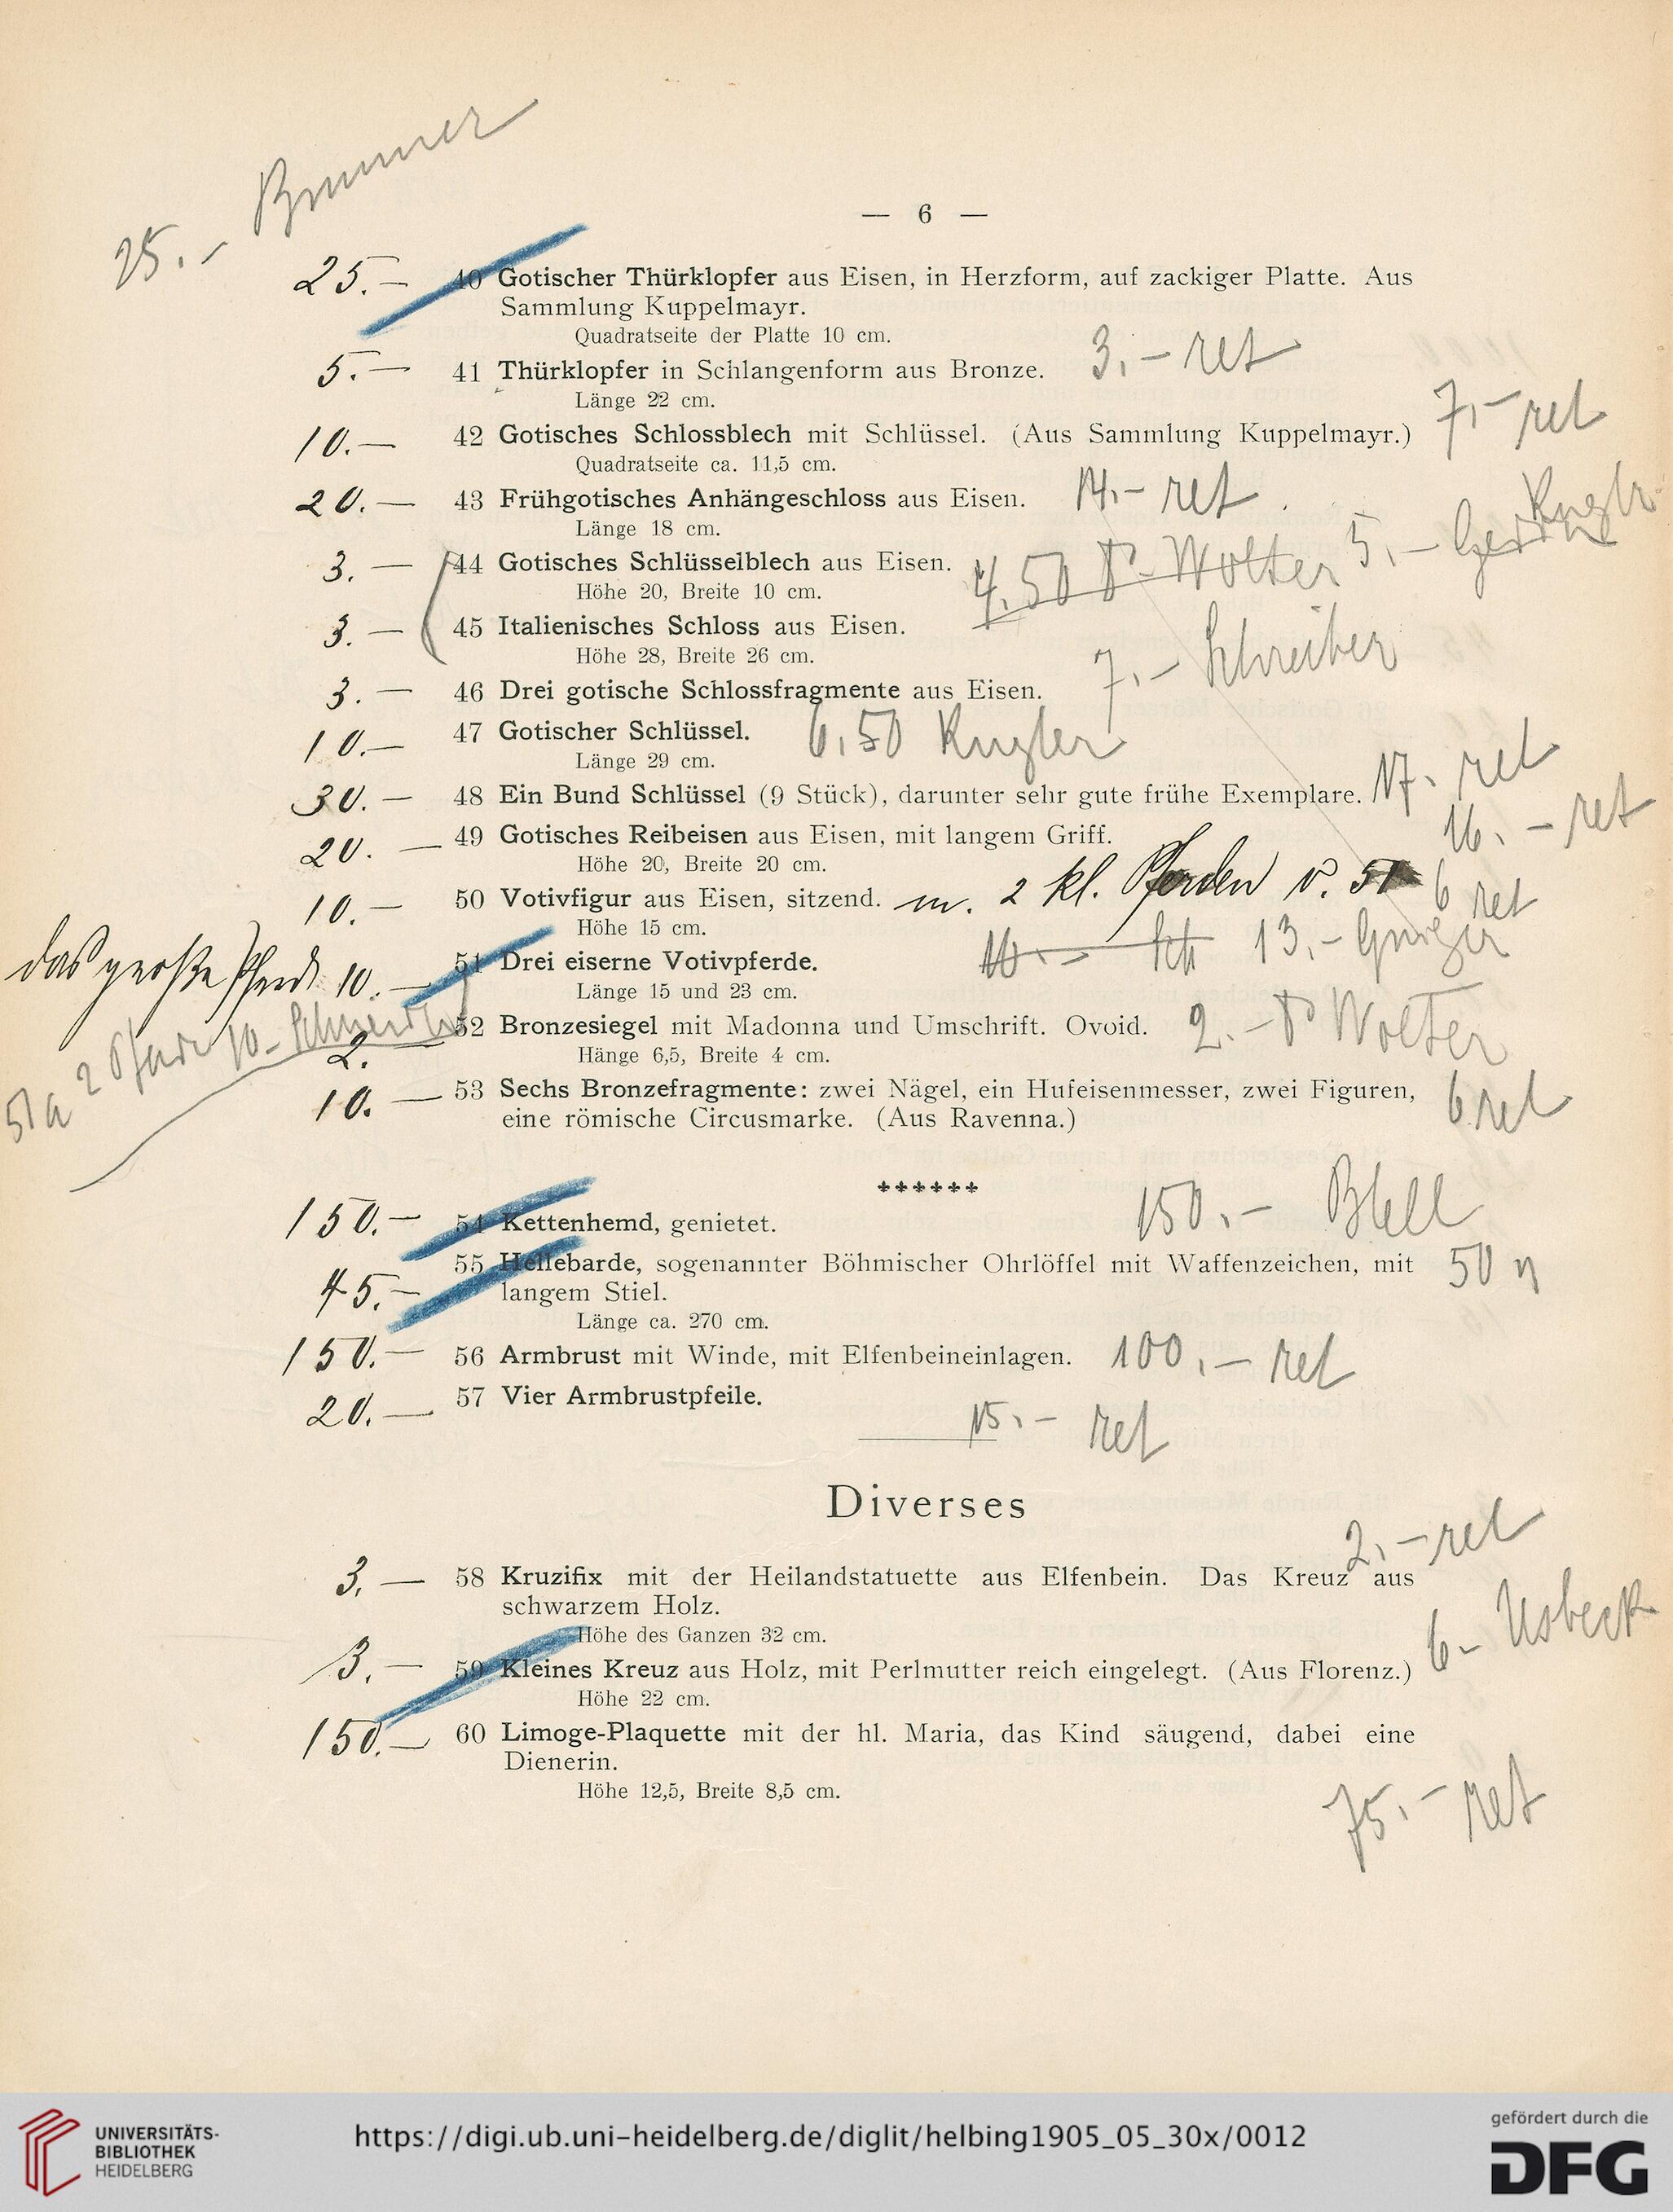 25.- Brunner
— 6 —
25.- 40 Gotischer Thürklopfer aus Eisen, in Herzform, auf zackiger Platte. Aus
Sammlung Kuppelmayr.
Quadratseite der Platte 10 cm.
5.- 41 Thürklopfer in Schlangenform aus Bronze. 3,- ret
Länge 22 cm.
10.- 42 Gotisches Schlossblech mit Schlüssel. (Aus Sammlung Kuppelmayr.) 7,- ret
Quadratseite ca. 11,5 cm.
20.- 43 Frühgotisches Anhängeschloss aus Eisen. 14,- ret
Länge 18 cm.
3.- 44 Gotisches Schlüsselblech aus Eisen. 4.50 Wolter 5,- Kugler
Höhe 20, Breite 10 cm.
3.- 45 Italienisches Schloss aus Eisen.
Höhe 28, Breite 26 cm.
3.- 46 Drei gotische Schlossfragmente aus Eisen. 7,- Schreiber
10.- 47 Gotischer Schlüssel. 6,50 Kugler
Länge 29 cm.
30.- 48 Ein Bund Schlüssel (9 Stück), darunter sehr gute frühe Exemplare. 17,- ret
20.- 49 Gotisches Reibeisen aus Eisen, mit langem Griff. 16,- ret
Höhe 20, Breite 20 cm.
10.- 50 Votivfigur aus Eisen, sitzend. m. 2 kl. Pferden v. 51 6 ret
Höhe 15 cm.
das große Pferd 10.- 51 Drei eiserne Votivpferde. 10.- 13,-
Länge 15 und 23 cm.
51a 2 Pferde 10-
2.- 52 Bronzesiegel mit Madonna und Umschrift. Ovoid. 2.- Wolter
Hänge 6,5, Breite 4 cm.
10.- 53 Sechs Bronzefragmente: zwei Nägel, ein Hufeisenmesser, zwei Figuren, 6 ret
eine römische Circusmarke. (Aus Ravenna.)
150.- 54 Kettenhemd, genietet. 150.- Blell
45.- 55 Hellebarde, sogenannter Böhmischer Ohrlöffel mit Waffenzeichen, mit 50 n
langem Stiel.
Länge ca. 270 cm.
150.- 56 Armbrust mit Winde, mit Elfenbeineinlagen. 100,- ret
20.- 57 Vier Armbrustpfeile. 15,- ret
Diverses
3.- 58 Kruzifix mit der Heilandstatuette aus Elfenbein. Das Kreuz aus 2,- ret
schwarzem Holz.
Höhe des Ganzen 32 cm.
3.- 59 Kleines Kreuz aus Holz, mit Perlmutter reich eingelegt. (Aus Florenz.) 6- Usbeck
Höhe 22 cm.
150.- 60 Limoge-Plaquette mit der hl. Maria, das Kind säugend, dabei eine
Dienerin.
Höhe 12,5, Breite 8,5 cm.
75,- ret
UNIVERSITÄTS-
BIBLIOTHEK
HEIDELBERG
https://digi.ub.uni-heidelberg.de/diglit/helbing1905_05_30x/0012
gefördert durch die
DFG